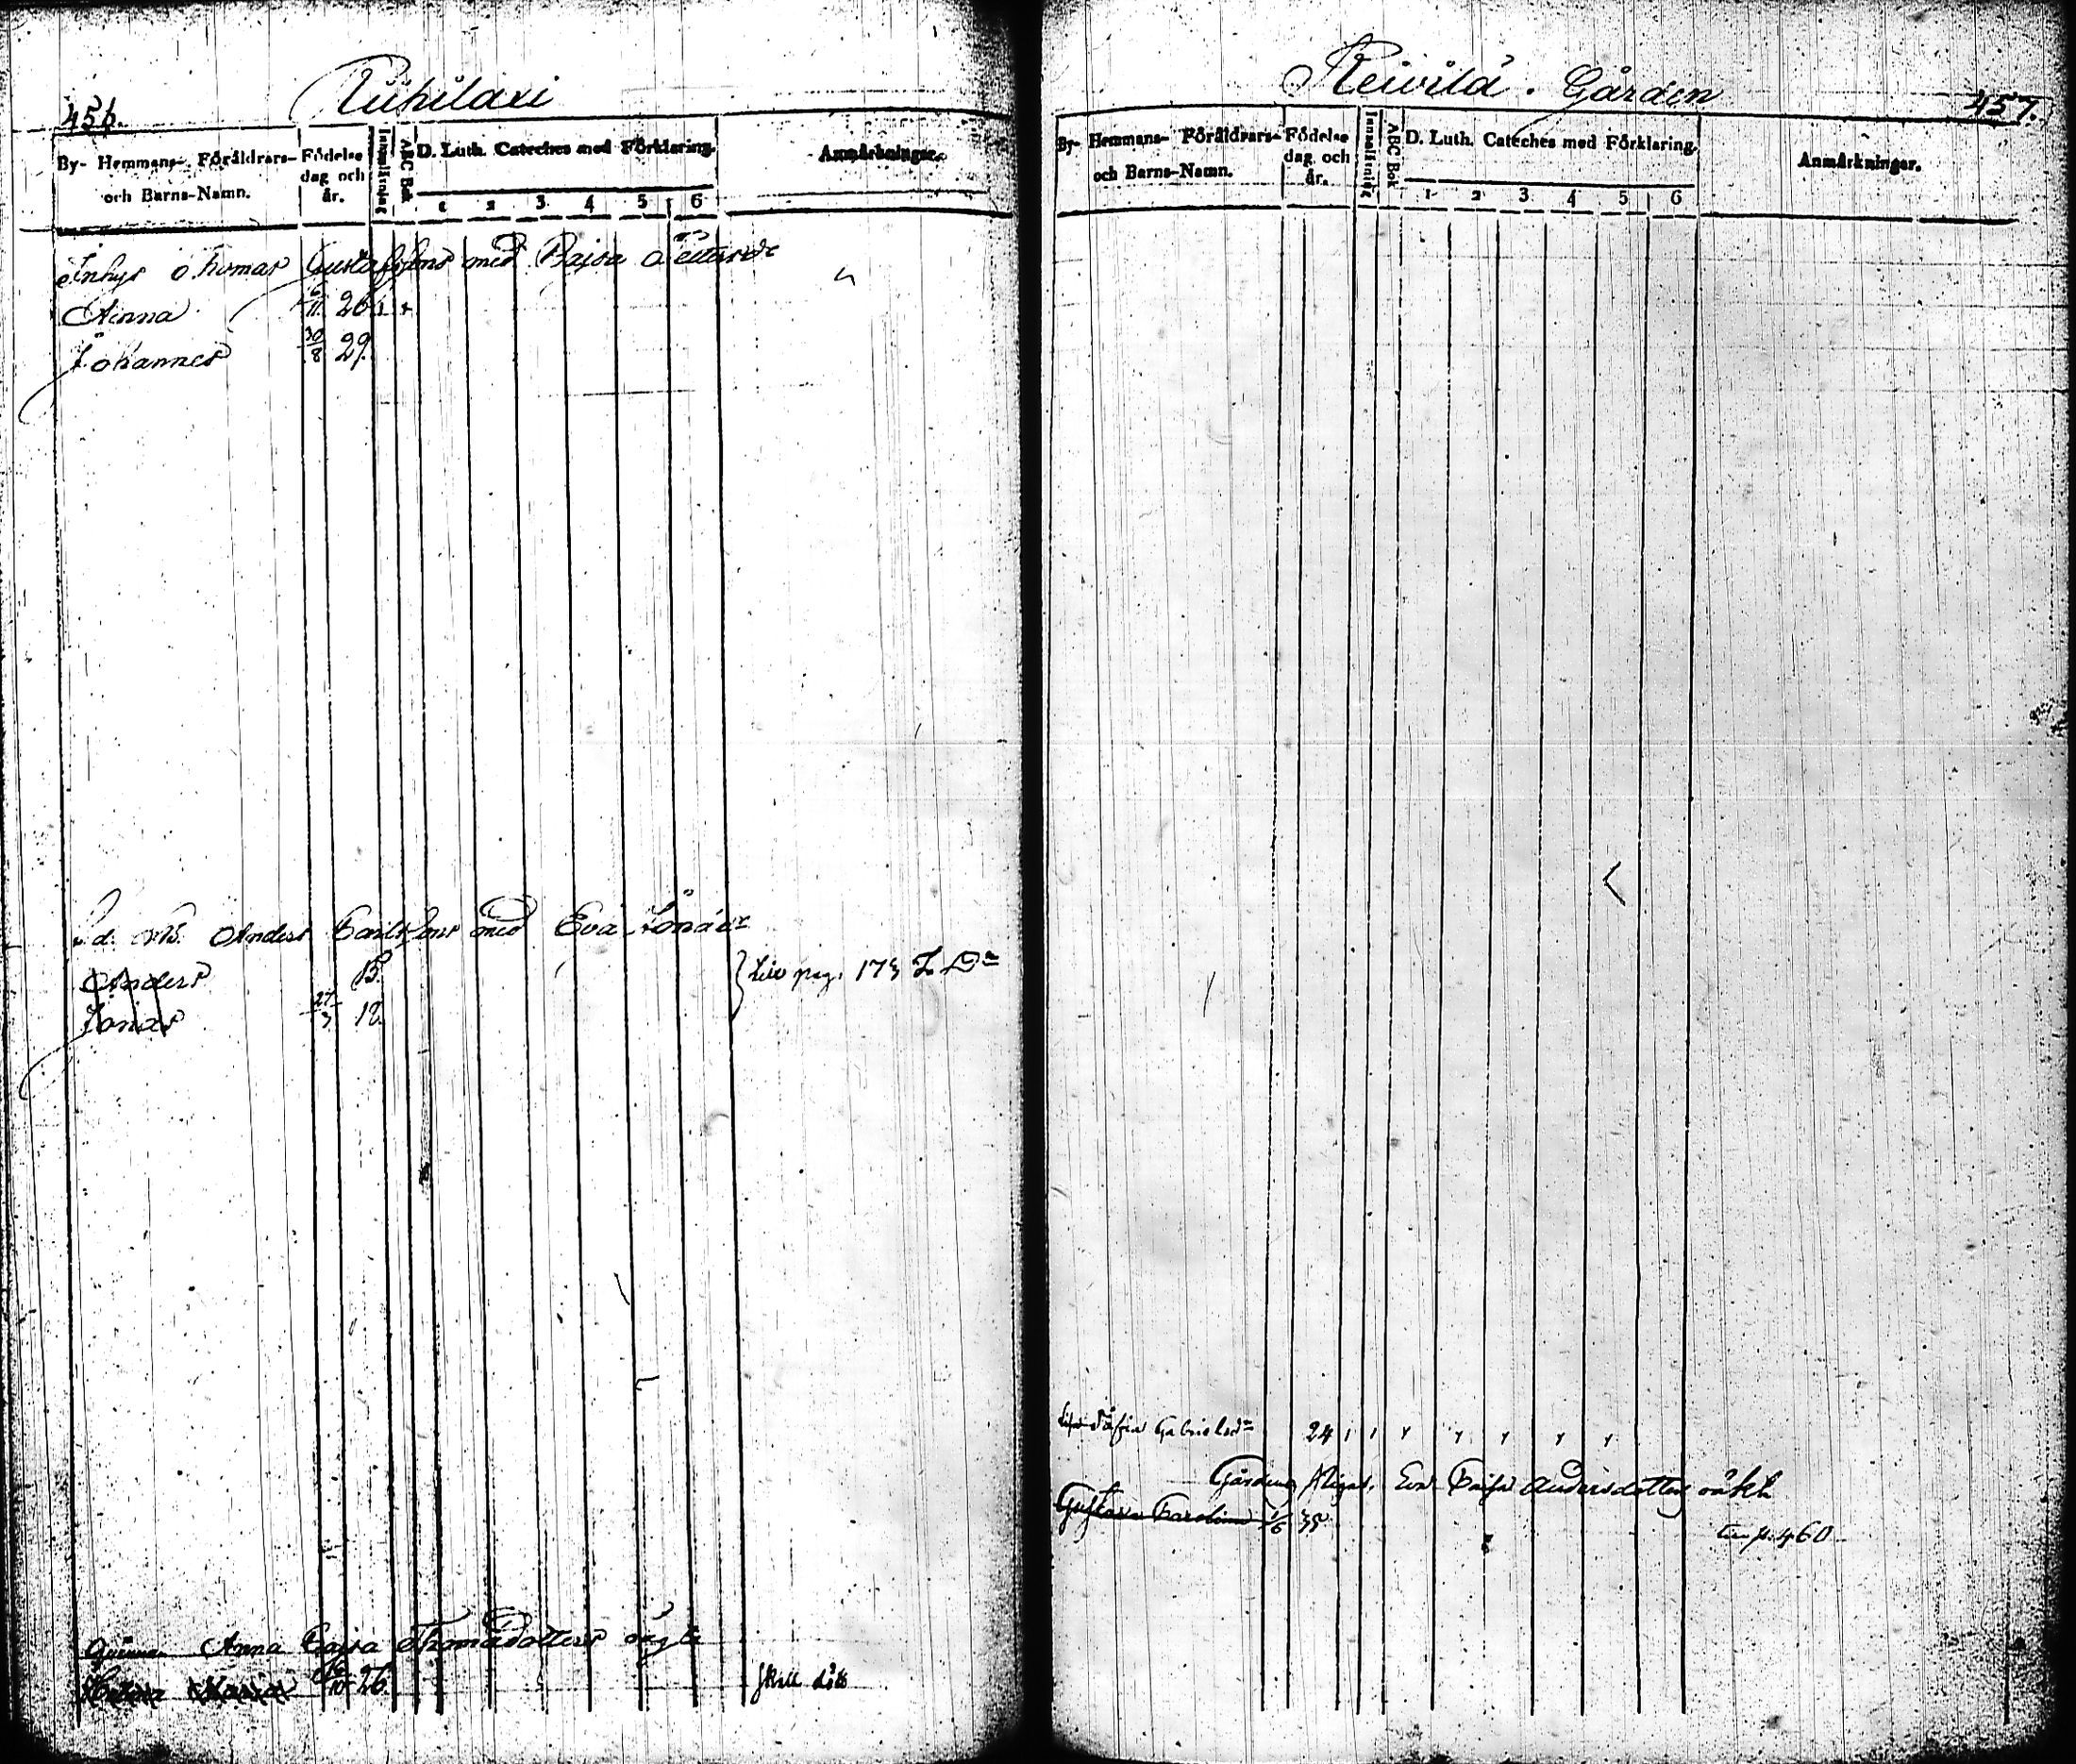 456.
Ruhilaxi
By- Hemmans- Föräldrars- och Barns-Namn.
Födelse dag och år.
Innanläsning
ABC Bok
D. Luth. Cateches med Förklaring.
1 2 3 4 5 6
Anmärkningar.
Inhys Thomas Gustafsons med Bajsa Petters dr
Anna 6/11 26
Johannes 30/8 29.
Anders Carlssons med Eva
Anders 15.
Jonas 27/3 18.
pag. 173
Qvinnan Anna Cajsa Thomædotters oägta
Maria 16/10 26.
457.
Keivilä. Gården
By- Hemmans- Föräldrars- och Barns-Namn.
Födelse dag och år.
Innanläsning
ABC Bok
D. Luth. Cateches med Förklaring.
1 2 3 4 5 6
Anmärkningar.
Gabrielsdr 24
Gårdens Pigas. Eva Caisa Andersdotters oäkt
Gustava Carolina 1/6 35
p. 460